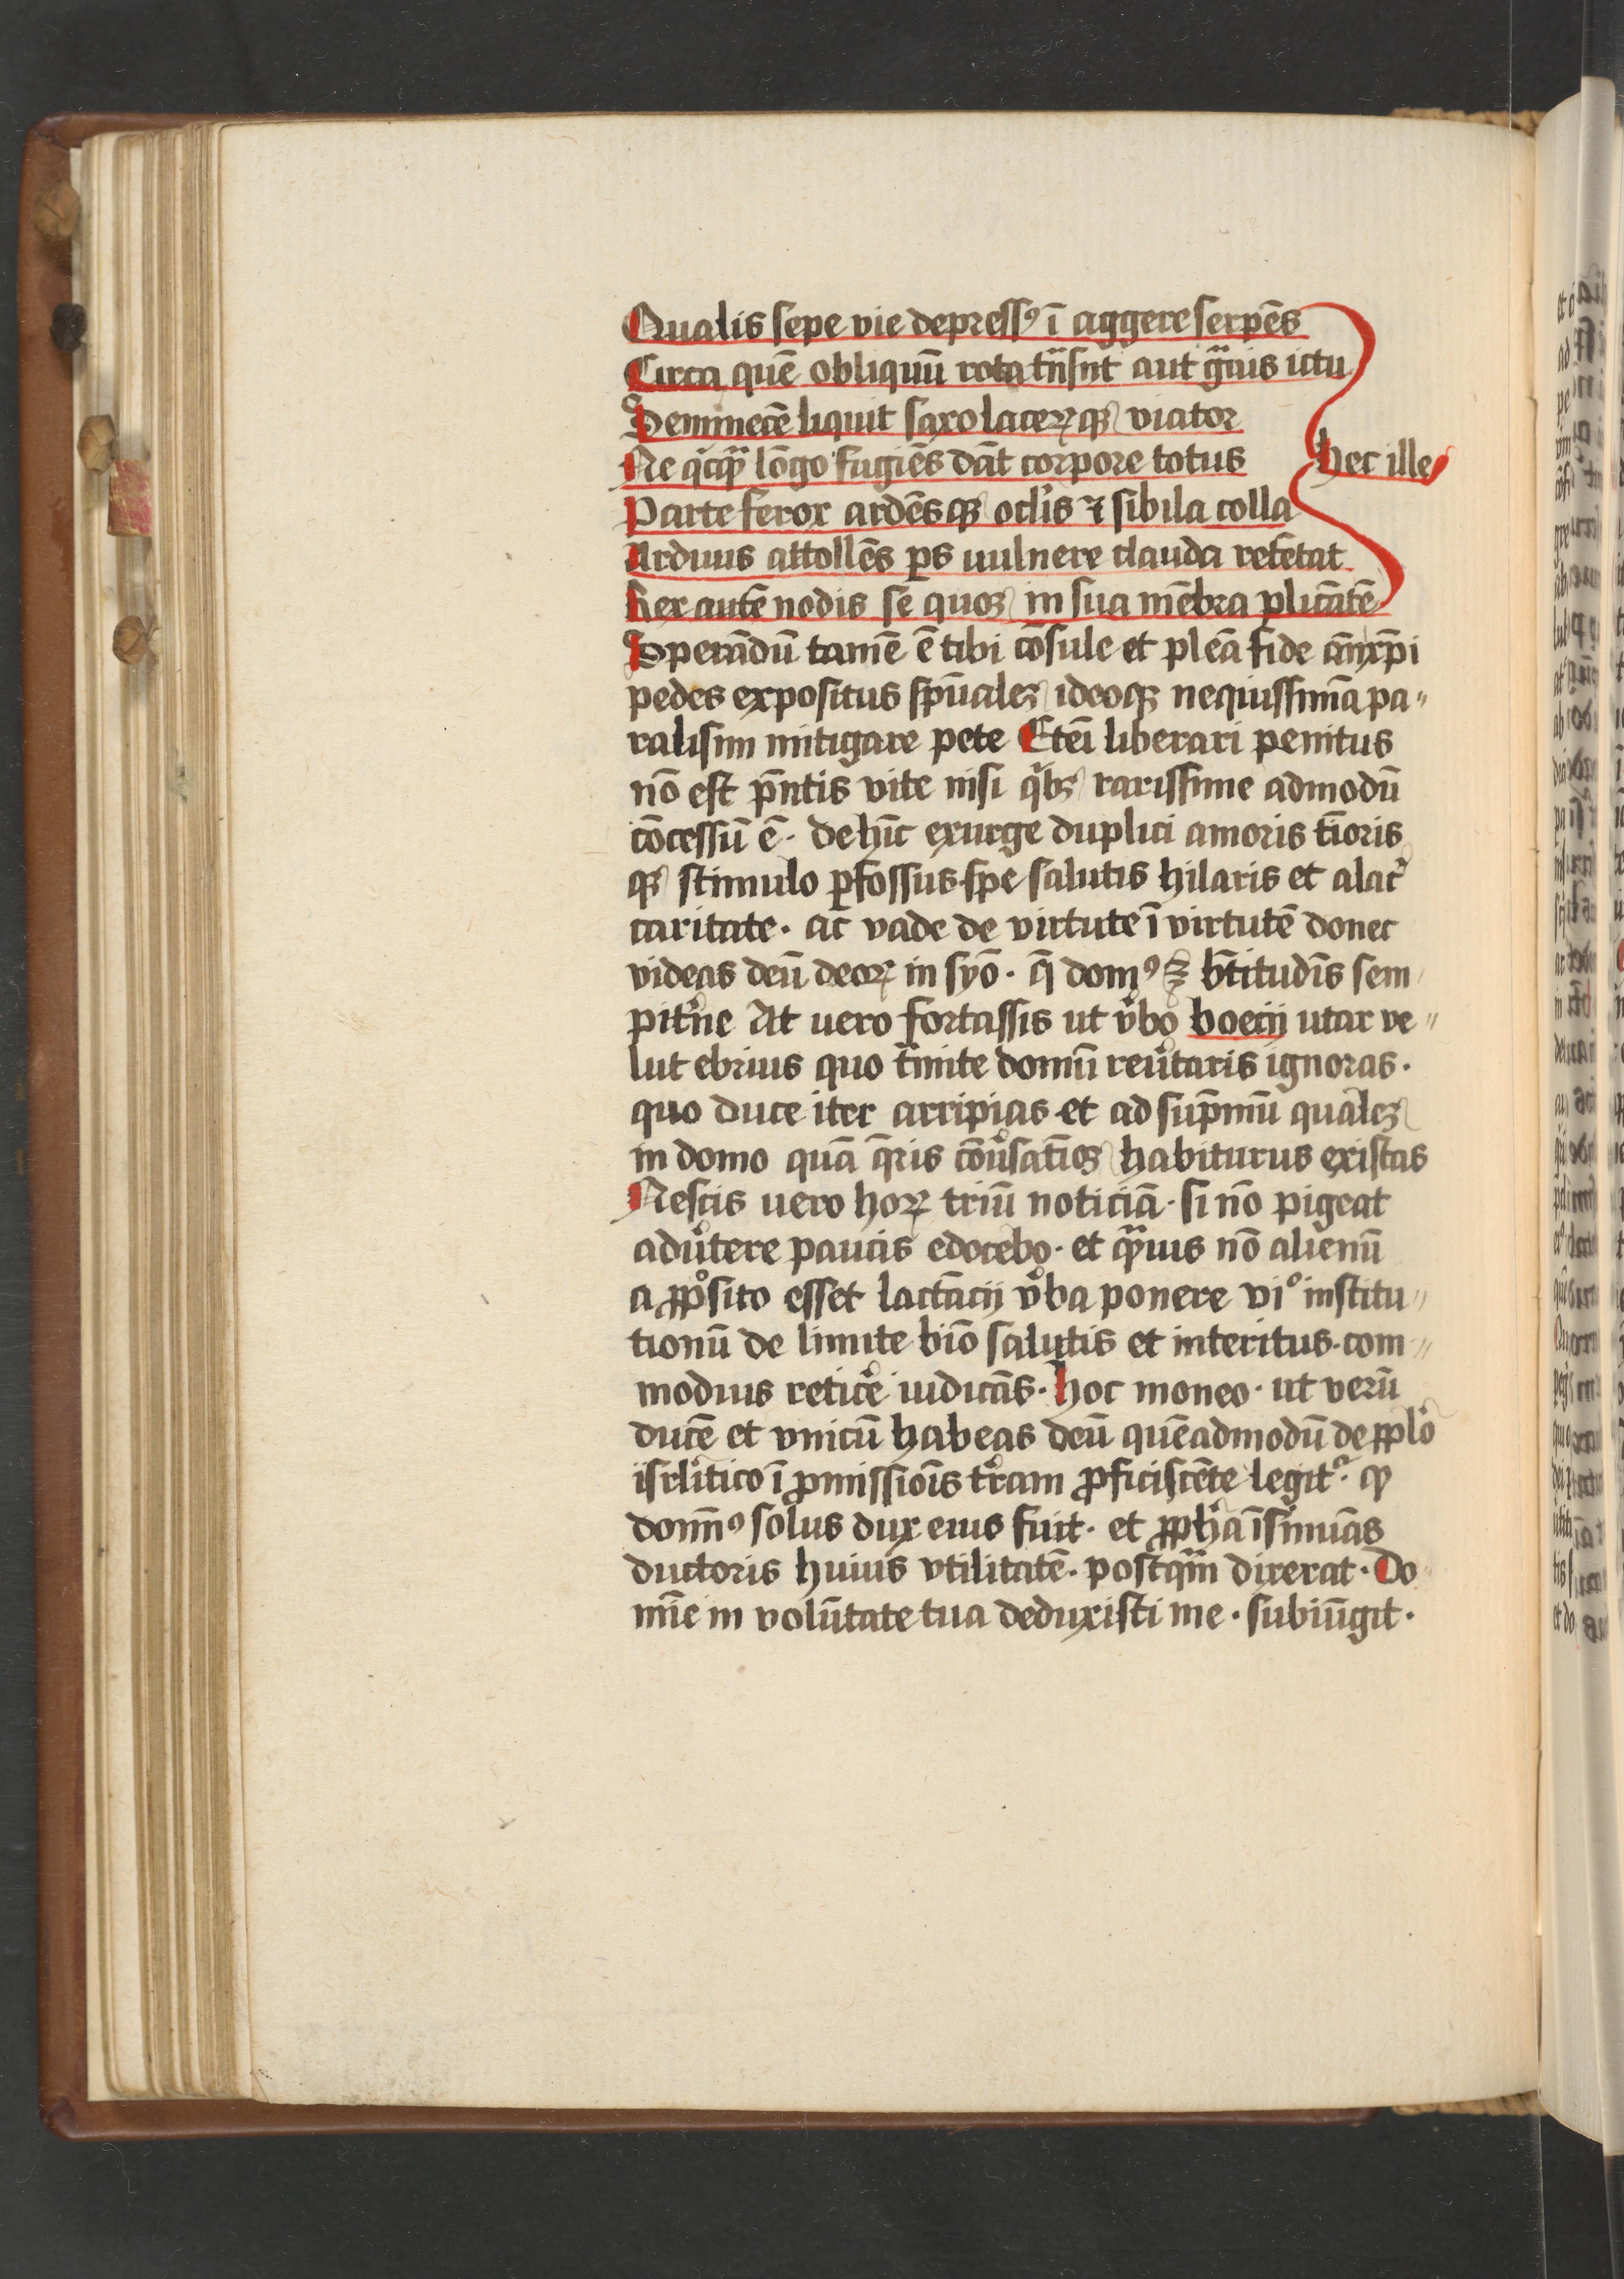 Qualis sepe vie depressꝰ ī aggere serpēs
Circa quē obliquū rota tñsiit aut gͣuis ictu
Seminecē liquit saxo lacerꝫ qꝫ viator
Ne qͥcqͣꝫ lōgo fugiēs dāt corpore totus
hec ille
Parte ferox ardēsqꝫ oclīs ⁊ sibila colla
Arduus attollēs ꝑs uulnere clauda retētat
Nex autē nodis se quoꝫ in sua mēbra plicātē
Sperādū tamē ē tibi cōsule et pleā fide
pedes expositus spūalēꝫ ideoqꝫ nequissimā pa〃
ralisim mitigare pete Eteī liberari penitus
nō est p̄ntis vite nisi qͥbꝫ rarissime admodū
cōcessū ē· dehīc exurge duplici amoris tīoris
qꝫ stimulo ꝑfossus spe salutis hilaris et alacͥ
caritate· ac vade de virtute ī virtutē donec
videas deū deoꝝ in syō· q̄ domꝰ ē b̄titudīs sem
pitͥne At uero fortassis ut v̓bo boecij utar ve〃
lut ebrius quo tͣmite domū reūtaris ignoras·
quo duce iter arripias et ad sup̄mū qualeꝫ
in domo quā q̄ris cōūsatīoꝫ habiturus existas
Nescis uero hoꝝ triū noticiā· si nō pigeat
adūtere paucis edocebo· et qͣꝫuis nō alienū
a ꝓpōsito esset lactācij v̓ba ponere viᵒ institu〃
tionū de limite bīo salutis et interitus· com〃
modius reticͥe iudicās· hoc moneo· ut verū
ducē et vnicū habeas deū quēadmodū de pplō
isrl̓itico ī ꝓmissiōis tͥram ꝓficiscēte legitᷣ· qꝫ
domīꝰ solus dux eius fuit· et ꝓph̓a īsinuās
ductoris huius vtilitatē· postqͣꝫ dixerat· Do
mīe in volūtate tua deduxisti me· subiūgit·